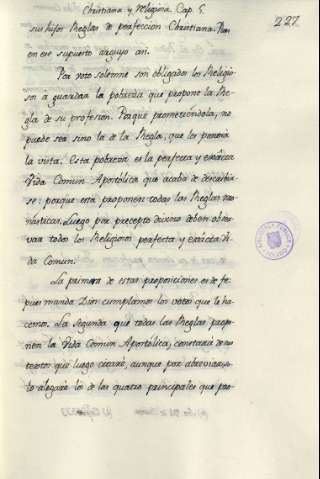 Christiana y Religiosa. Cap. 5.
227
sus hijos Reglas de perfeccion Christiana. Pues
en ese supuesto arguyo asi.
Por voto solemne son obligados los Religio-
sos á guardar la pobreza que propone la Re-
gla de su profesion. Porque prometiendola, no
puede ser sino la de la Regla, que les ponen á
la vista. Esta pobreza es la perfecta y exâcta
Vida Comun Apostólica que acaba de describir-
se: porque esta proponen todas las Reglas mo-
násticas. Luego por precepto divino deben obser-
var todos los Religiosos perfecta y exâcta Vi-
da Comun.
La primera de estas proposiciones es de fe
pues manda Dios cumplamos los votos que le ha-
cemos. La segunda que todas las Reglas propo-
nen la Vida Comun Apostólica, constará de sus
textos que luego citaré, aunque por abreviar so-
lo alegaré los de las quatro principales que pro-